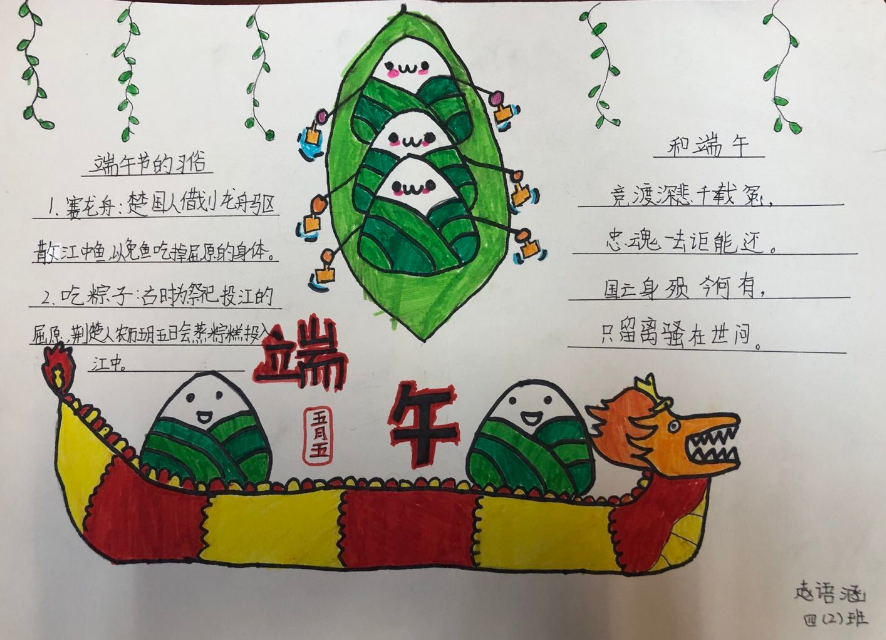 端午节的习俗
1.赛龙舟:楚国人借划龙舟驱
散江中鱼,以免鱼吃掉屈原的身体。
2.吃粽子:古时为祭祀投江的
屈原,荆楚人农历五月五日会蒸粽糕投入
江中。
和端午
竞渡深悲千载冤,
忠魂一去讵能还。
国亡身殒今何有,
只留离骚在世间。
端午
五月五
语涵
四(2)班